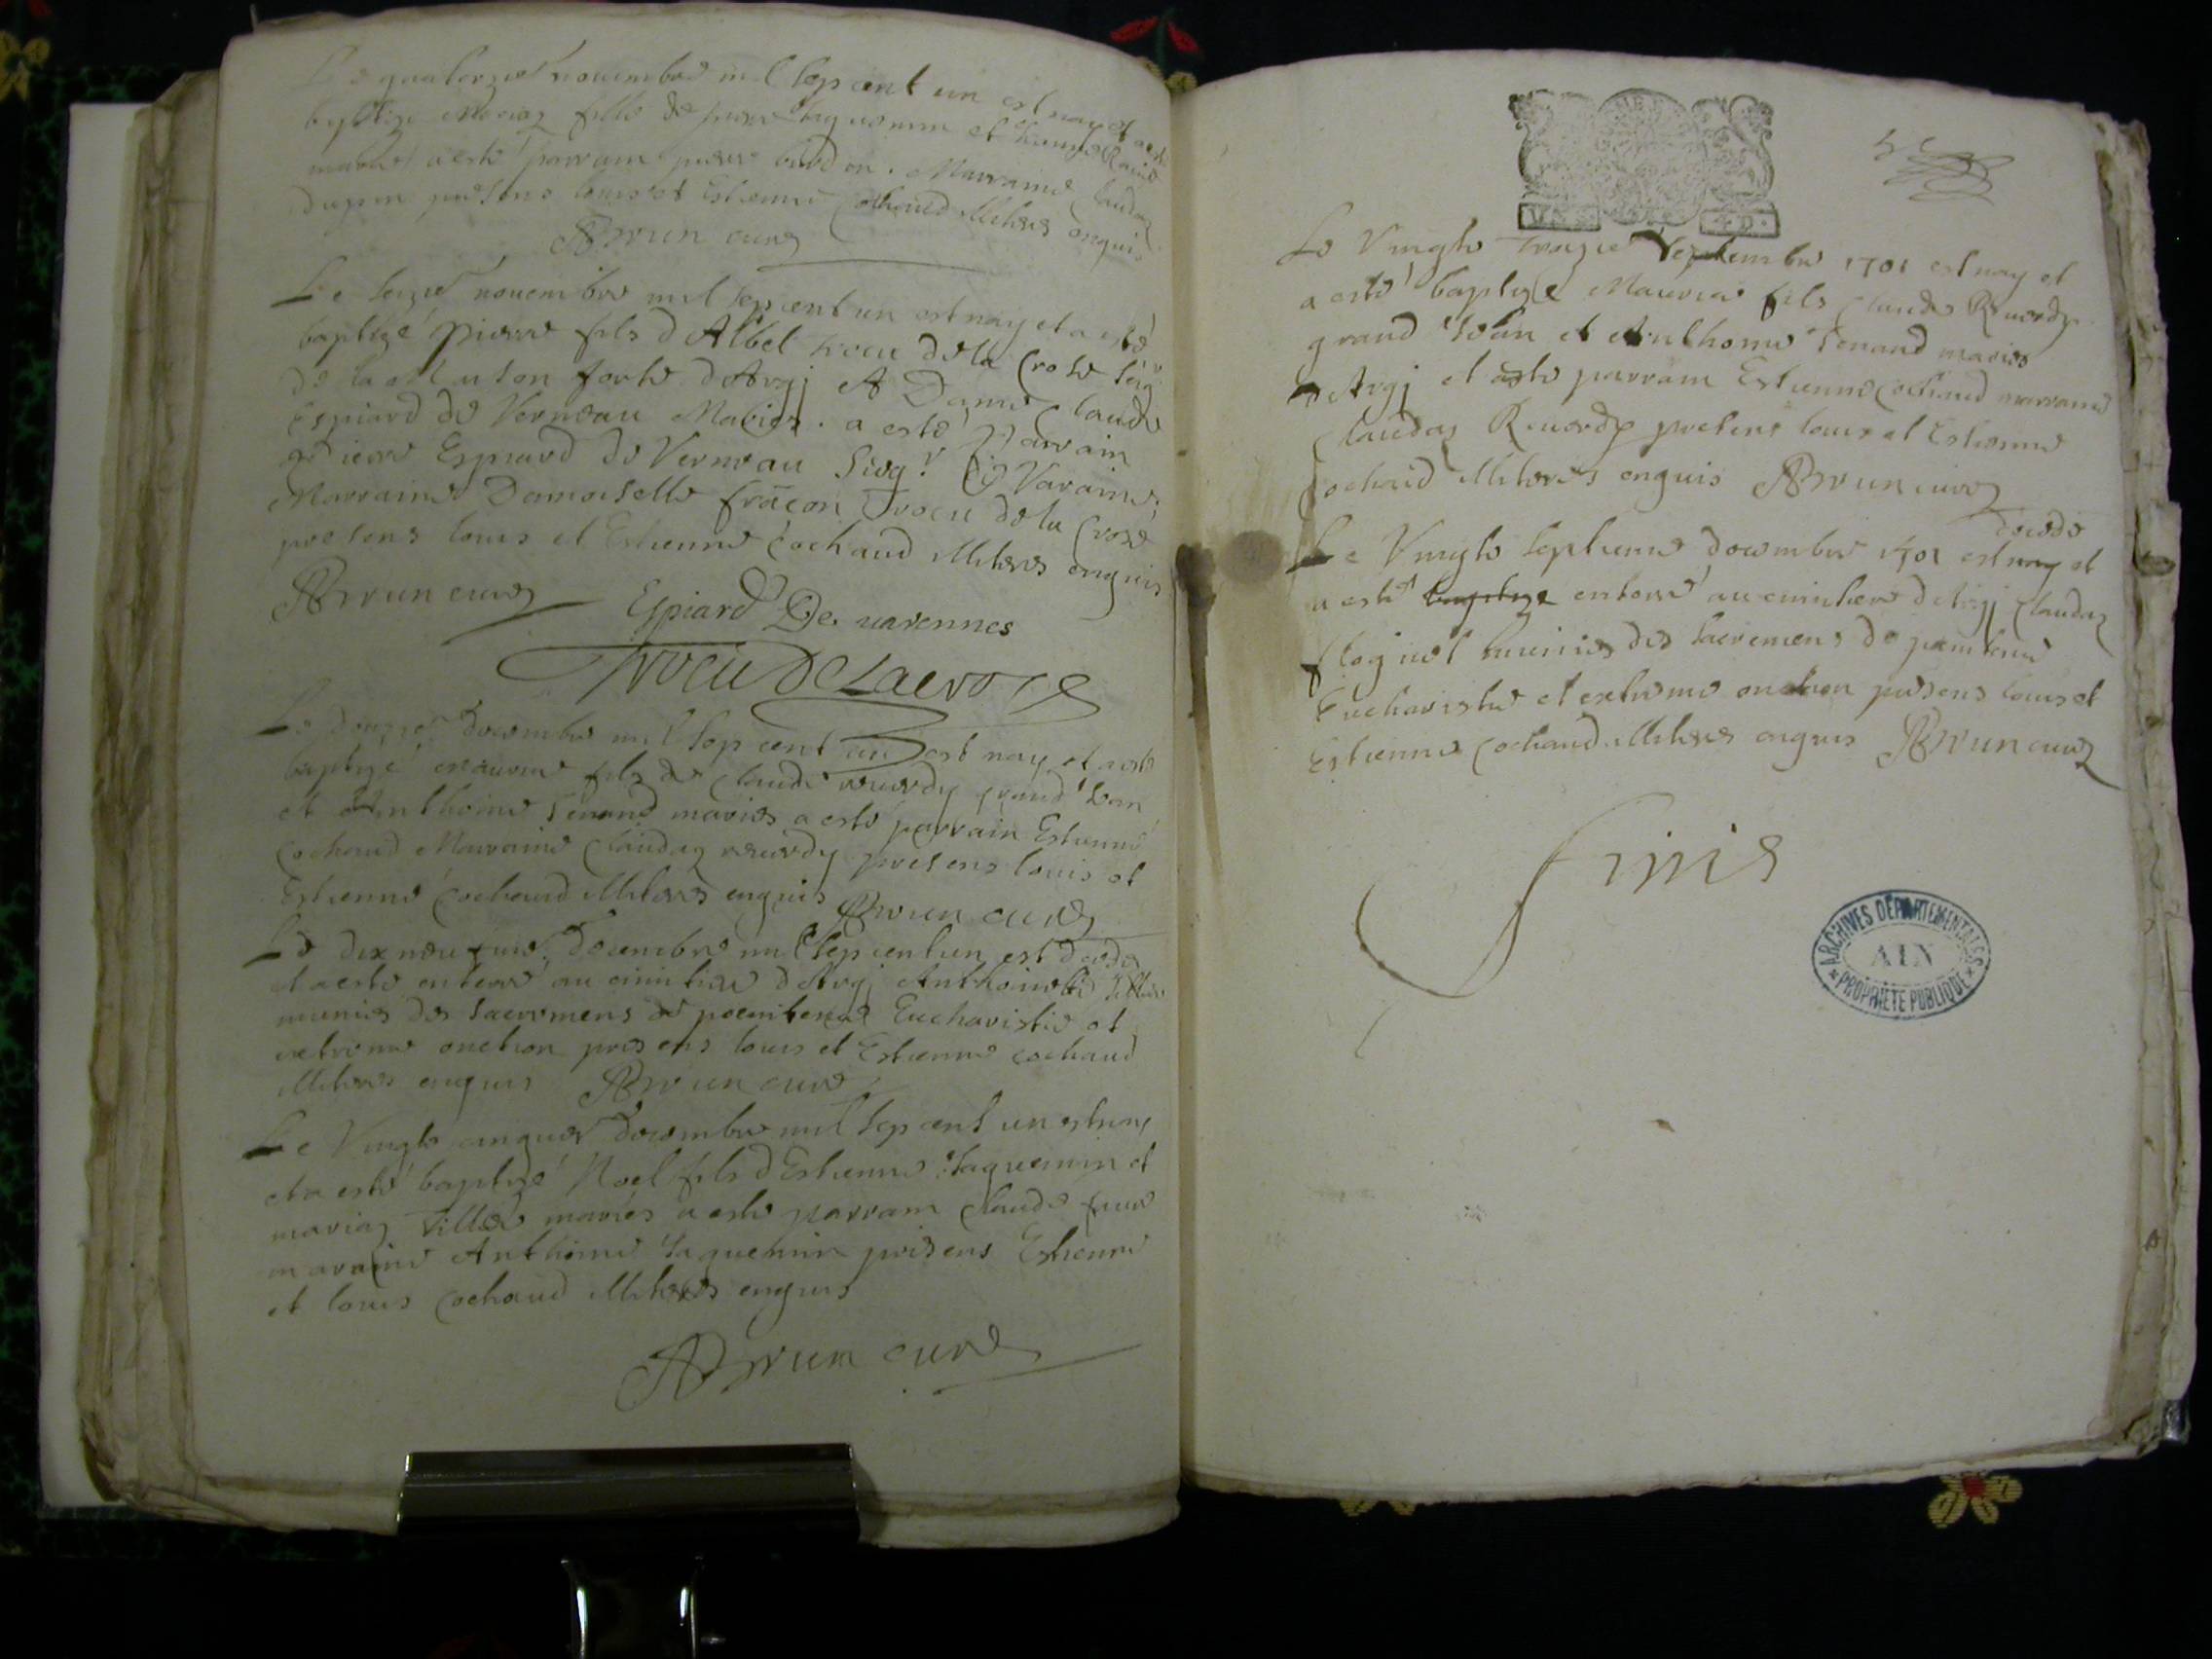 Le quatorzie novembre mil sept cent un est nay et a esté
baptizé fille de pierre et
mariés a esté parrain pierre . Marraine Claudaz
presens louis et Estienne Cochaud illiteres enquis
ABrun curez
Le seizie novembre mil sept cent un est nay et a esté
baptizé pierre fils d Albel trocu de la Crose seigr
de la maison forte d Argj et Dame Claude
Espiard de Verneau Mariez . a esté parrain
pierre Espiard de Verneau Sieigr de Varaine
Marraine Damoiselle frācon trocu de la Crose
presens louis et Estienne Cochaud illiteres enquis
ABrun curez Espiard De varennes
Trocu De Lacroze
Le decembre mil sept cent un est nay et a esté
baptizé fils de Claude reverdy grand Jean
et Anthoine Tenand mariés a esté parrain Estienne
Cochaud Marraine Claudaz reverdy presens louis et
Estienne Cochaud illiteres enquis ABrun curez
Le dix neufvie decembre mil sept cent un est decedez
et a esté enterré au cimitiere d Argj Anthoinete
munie des sacremens de poenitence Eucharistie et
extreme onction presens louis et Estienne cochaud
illiteres enquis ABrun curé
Le Vingte cinquie decembre mil sept cent un est nay
et a esté baptizé Noel fils d Estienne Jaquemin et
mariaz Tillier mariés a esté parram Claude
maraine Anthoine Jaquemin presens Estienne
et louis Cochaud illiteres enquis
ABrun curé
Le Vingte Septembre 1701 est nay et
a esté baptizé Maurice fils Claude Reverdy
grand Jean et Anthoine Tenand mariés
d Argj et a esté parram Estienne Cochaud marraine
Claudaz Reverdy presens louis et Estienne
Cochaud illiteres enquis ABrun curez
decede
Le Vingte septieme decembre 1701 est nay et
a esté baptize enterré au cimitiere d Argj Claudaz
munie des sacremens de penitence
Eucharistie et extreme onction presens louis et
Estienne Cochaud illiteres enquis ABrun curez
finis
ARCHIVES DÉPARTEMENTALES
AIN
PROPRIÉTÉ PUBLIQUE